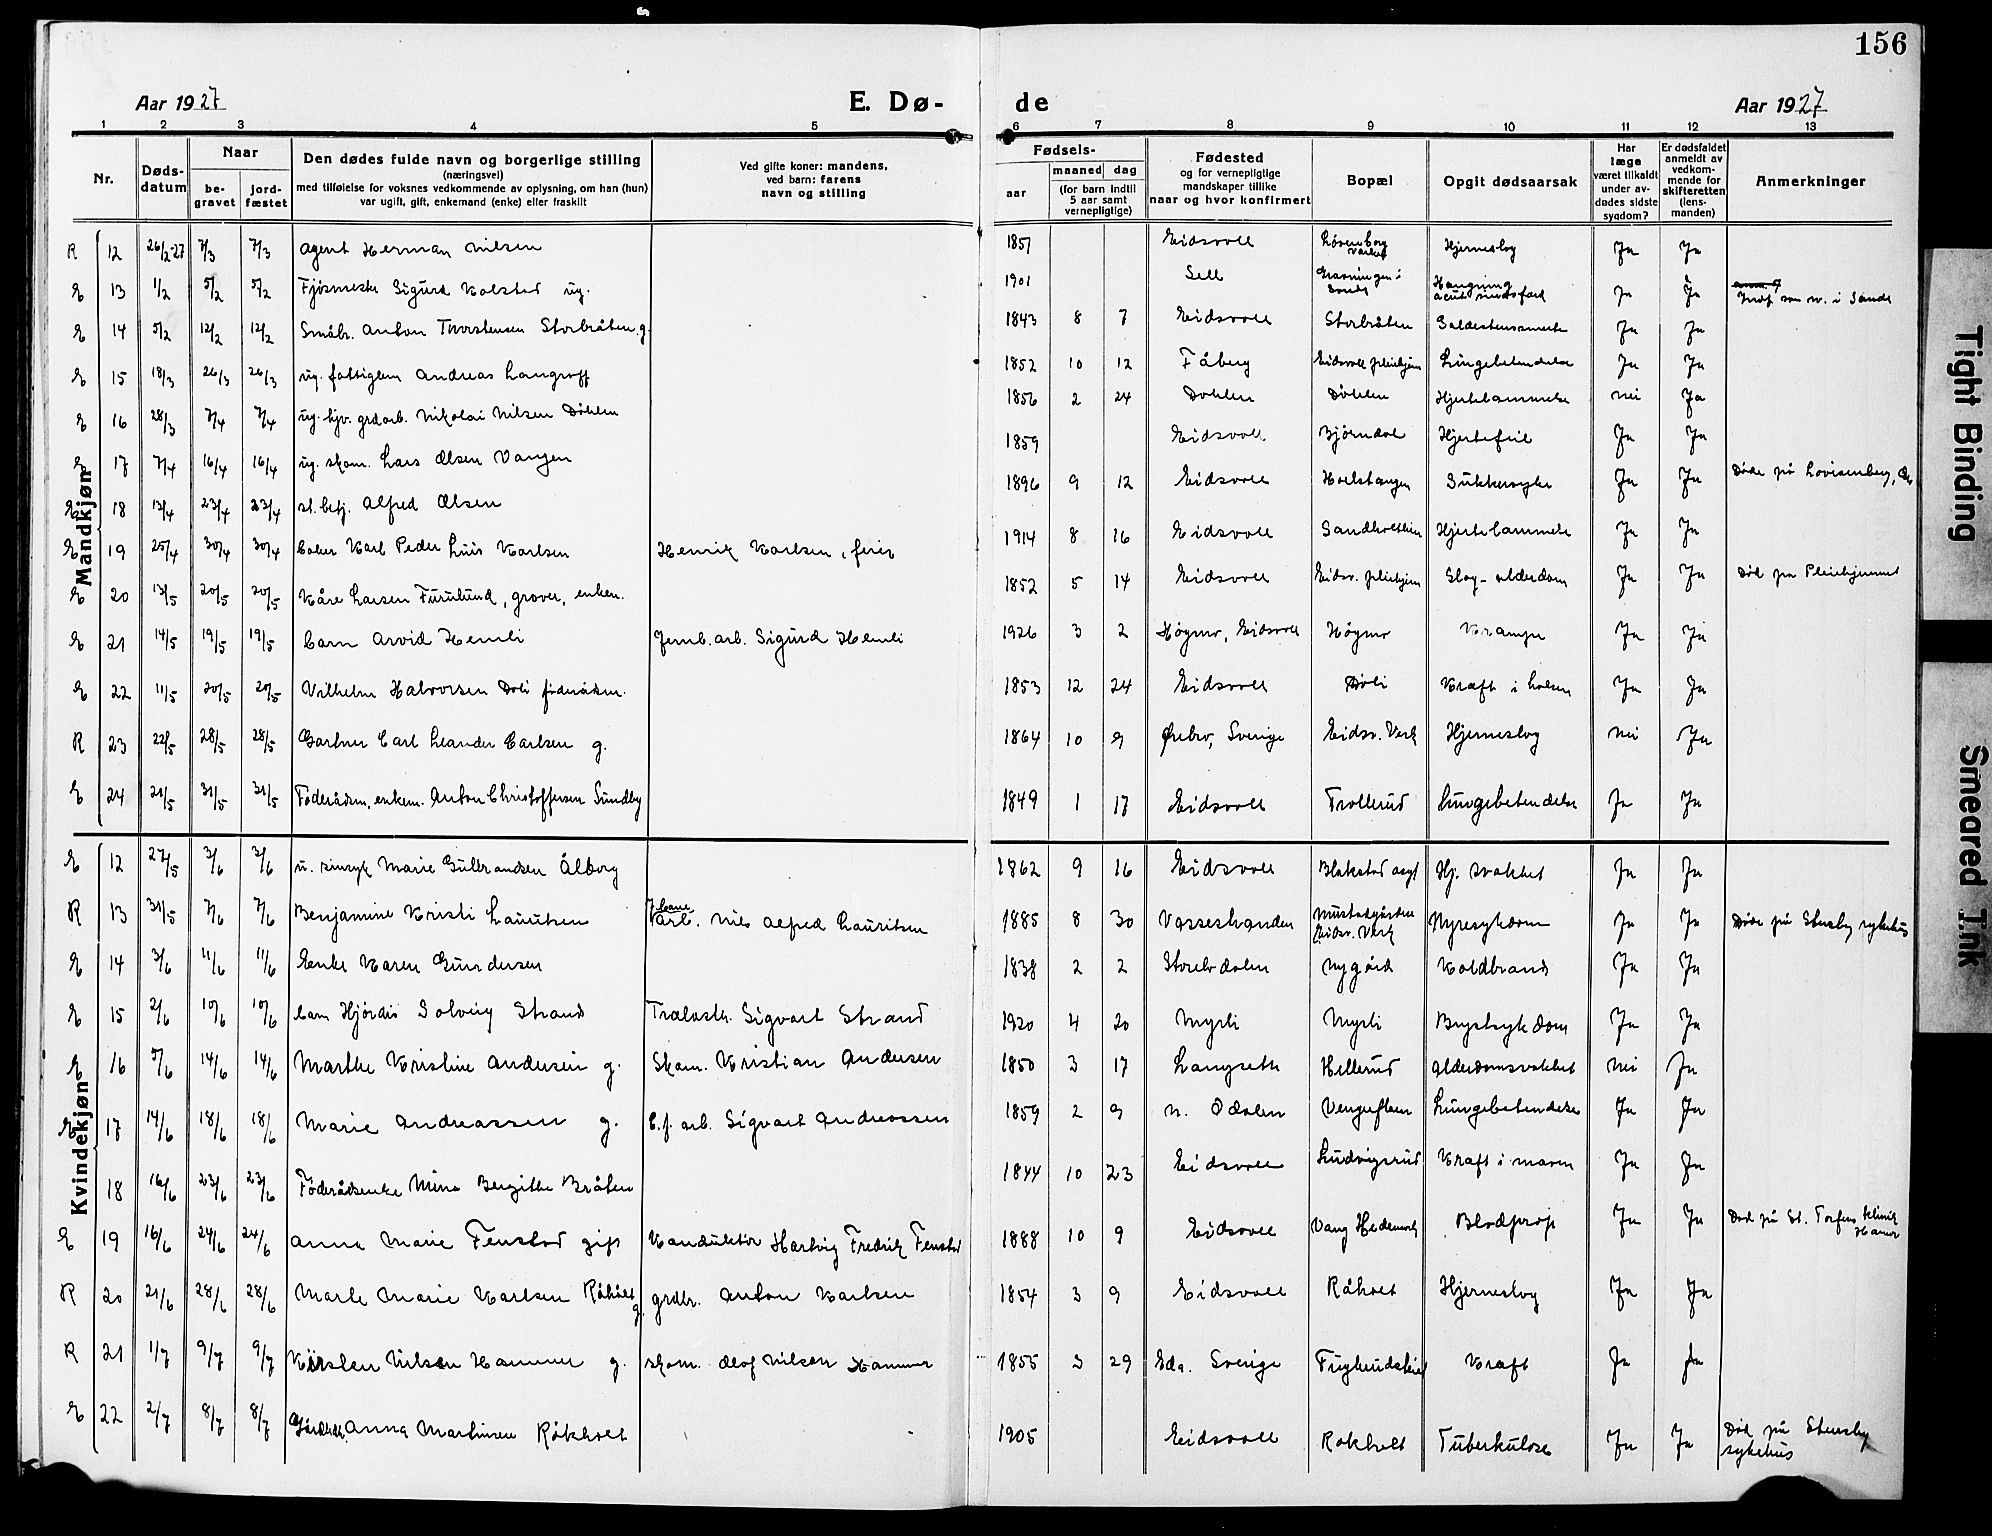 156
Aar 1927 E. Dø- de Aar 1927
1 2 3 4 5 6 7 8 9 10 11 12 13
Nr. Døds-datum Naar be-gravet jord-fæstet Den dødes fulde navn og borgerlige stilling (næringsvei) med tilføielse for voksnes vedkommende av oplysning, om han (hun) var ugift, gift, enkemand (enke) eller fraskilt Ved gifte koner: mandens, ved barn: farens navn og stilling Fødsels- aar maaned dag (for barn indtil 5 aar samt vernepligtige) Fødested og for vernepligtige mandskaper tillike naar og hvor konfirmert Bopæl Opgit dødsaarsak Har læge været tilkaldt under av-dødes sidste sygdom? Er dødsfaldet anmeldt av vedkom-mende for skifteretten (lens-manden) Anmerkninger
Mandkjøn
R 12 26/2-27 7/3 7/3 Agent Herman Nilsen 1851 Eidsvoll Hjerneslag Ja Ja
E 13 1/2 5/2 5/2 Sigurd Kolstad ug. 1901 Sell Hængning Ja Ja
E 14 5/2 12/2 12/2 Småbr. Anton Thorstensen Storbråten g. 1843 8 7 Eidsvoll Storbråten Ja Ja
E 15 18/3 26/3 26/3 ug. fattiglem Andreas 1852 10 12 Fåberg Eidsvoll pleiehjem Lungebetendelse Ja Ja
E 16 28/3 7/4 7/4 ug. hjv. grdarb. Nikolai Nilsen Døhlen 1856 2 24 Dohlen Døhlen Hjertelammelse nei Ja
E 17 7/4 16/4 16/4 ug. skom. Lars Olsen Vangen 1859 Eidsvoll Bjørndal Hjertefeil Ja Ja
E 18 13/4 23/4 23/4 st.betj. Alfred Olsen 1896 9 12 Eidsvoll Holstangen Sukkersyke Ja Ja Døde på Lovisenberg,
E 19 25/4 30/4 30/4 Karl Peder Karlsen Henrik Karlsen, feier 1914 8 16 Eidsvoll Hjertelammelse Ja Ja
E 20 13/5 20/5 20/5 Kåre Larsen Furulund, graver, enkem. 1852 5 14 Eidsvoll Eidsv. pleiehjem Slag - alderdom Ja Ja Død på Pleiehjemmet
E 21 14/5 19/5 19/5 barn Arvid Hemli Jernb. arb. Sigurd Hemli 1926 3 2 Høgmo, Eidsvoll Høgmo Krampe Ja Ja
E 22 11/5 20/5 20/5 Vilhelm Halvorsen Doli 1853 12 24 Eidsvoll Doli Kræft i halsen Ja Ja
R 23 22/5 28/5 28/5 Gartner Carl Leander Carlsen g. 1864 10 9 Ørebro, Sverige Eidsv. Verk Hjerneslag nei Ja
E 24 21/5 31/5 31/5 Føderådsm. enkem. Anton Christoffersen Sundby 1849 1 17 Eidsvoll Trollerud Lungebetendelse Ja Ja
Kvindekjøn
E 12 27/5 3/6 3/6 u. sinsyk Marie Gulbrandsen Ålborg 1862 9 16 Eidsvoll Blakstad asyl Hj. svakhet Ja Ja
R 13 31/5 7/6 7/6 Benjamine Kristi Lauritsen Nils Alfred Lauritsen 1885 8 30 Vasseshanden Eidsv. Verk Nyresykdom Ja Ja Døde på Stensby sykehus
E 14 3/6 11/6 11/6 Enke Karen Gundersen 1838 2 2 Nygård Koldbrand Ja Ja
E 15 2/6 10/6 10/6 barn Hjørdis Solveig Strand Sigvart Strand 1920 4 20 Myrli Myrli Brystsykdom Ja Ja
E 16 5/6 14/6 14/6 Marthe Kristine Andersen g. Skom. Kristian Andersen 1850 3 17 Langseth Hellerud Alderdomsvakhet nei Ja
E 17 14/6 18/6 18/6 Marie Andreassen g. arb. Sigvart Andreassen 1859 2 9 n. Odalen Lungebetendelse Ja Ja
18 16/6 23/6 23/6 Føderådsenke Mina Bergitte Bråten 1844 10 23 Eidsvoll Ludvigsrud Kræft i maven Ja Ja
E 19 16/6 24/6 24/6 Anna Marie Fenstad gift Konduktør Hartvig Fredrik Fenstad 1888 10 9 Eidsvoll Vang Hedemark Blodprop Ja Ja Død på St. Torfins klinik Hamar
R 20 21/6 28/6 28/6 Marte Marie Karlsen Råholt g. grdbr. Anton Karlsen 1854 3 9 Eidsvoll Råholt Hjerneslag Ja Ja
R 21 1/7 9/7 9/7 Nilsen Hammer g. skom. Olof Nilsen Hammer 1855 3 29 Eda. Sverige Kræft Ja Ja
E 22 2/7 8/7 8/7 Anna Martinsen Råkholt 1905 Eidsvoll Rakholt Tuberkulose Ja Ja Død på Stensby sykehus
Tight Binding
Smeared Ink